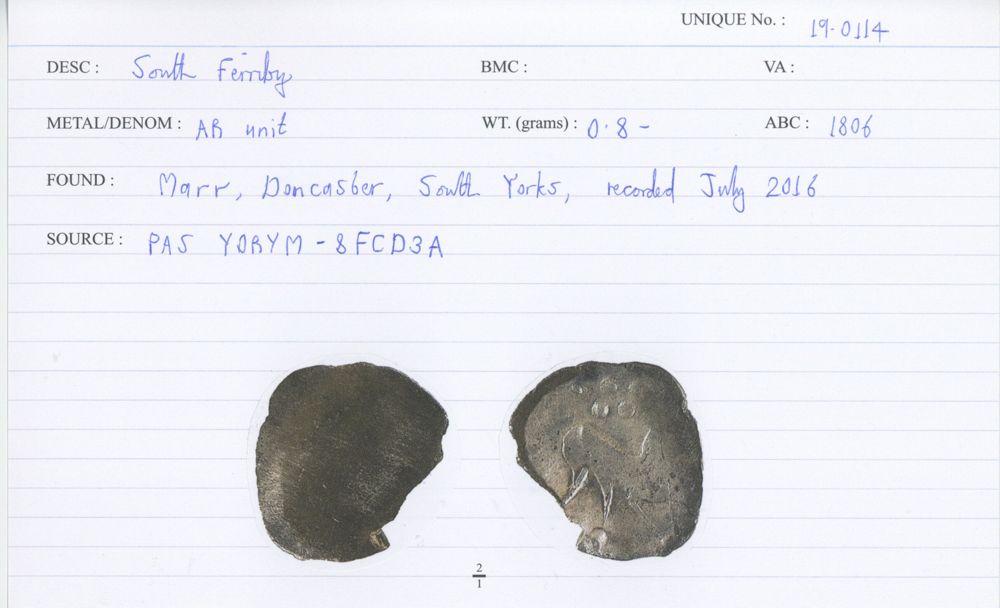 UNIQUE No. : 19-0114
DESC : South Ferriby BMC : VA :
METAL/DENOM : AR unit WT. (grams) : 0.8 - ABC : 1806
FOUND : Marr, Doncaster, South Yorks, recorded July 2016
SOURCE : PAS YORYM - 8FCD3A
2
1